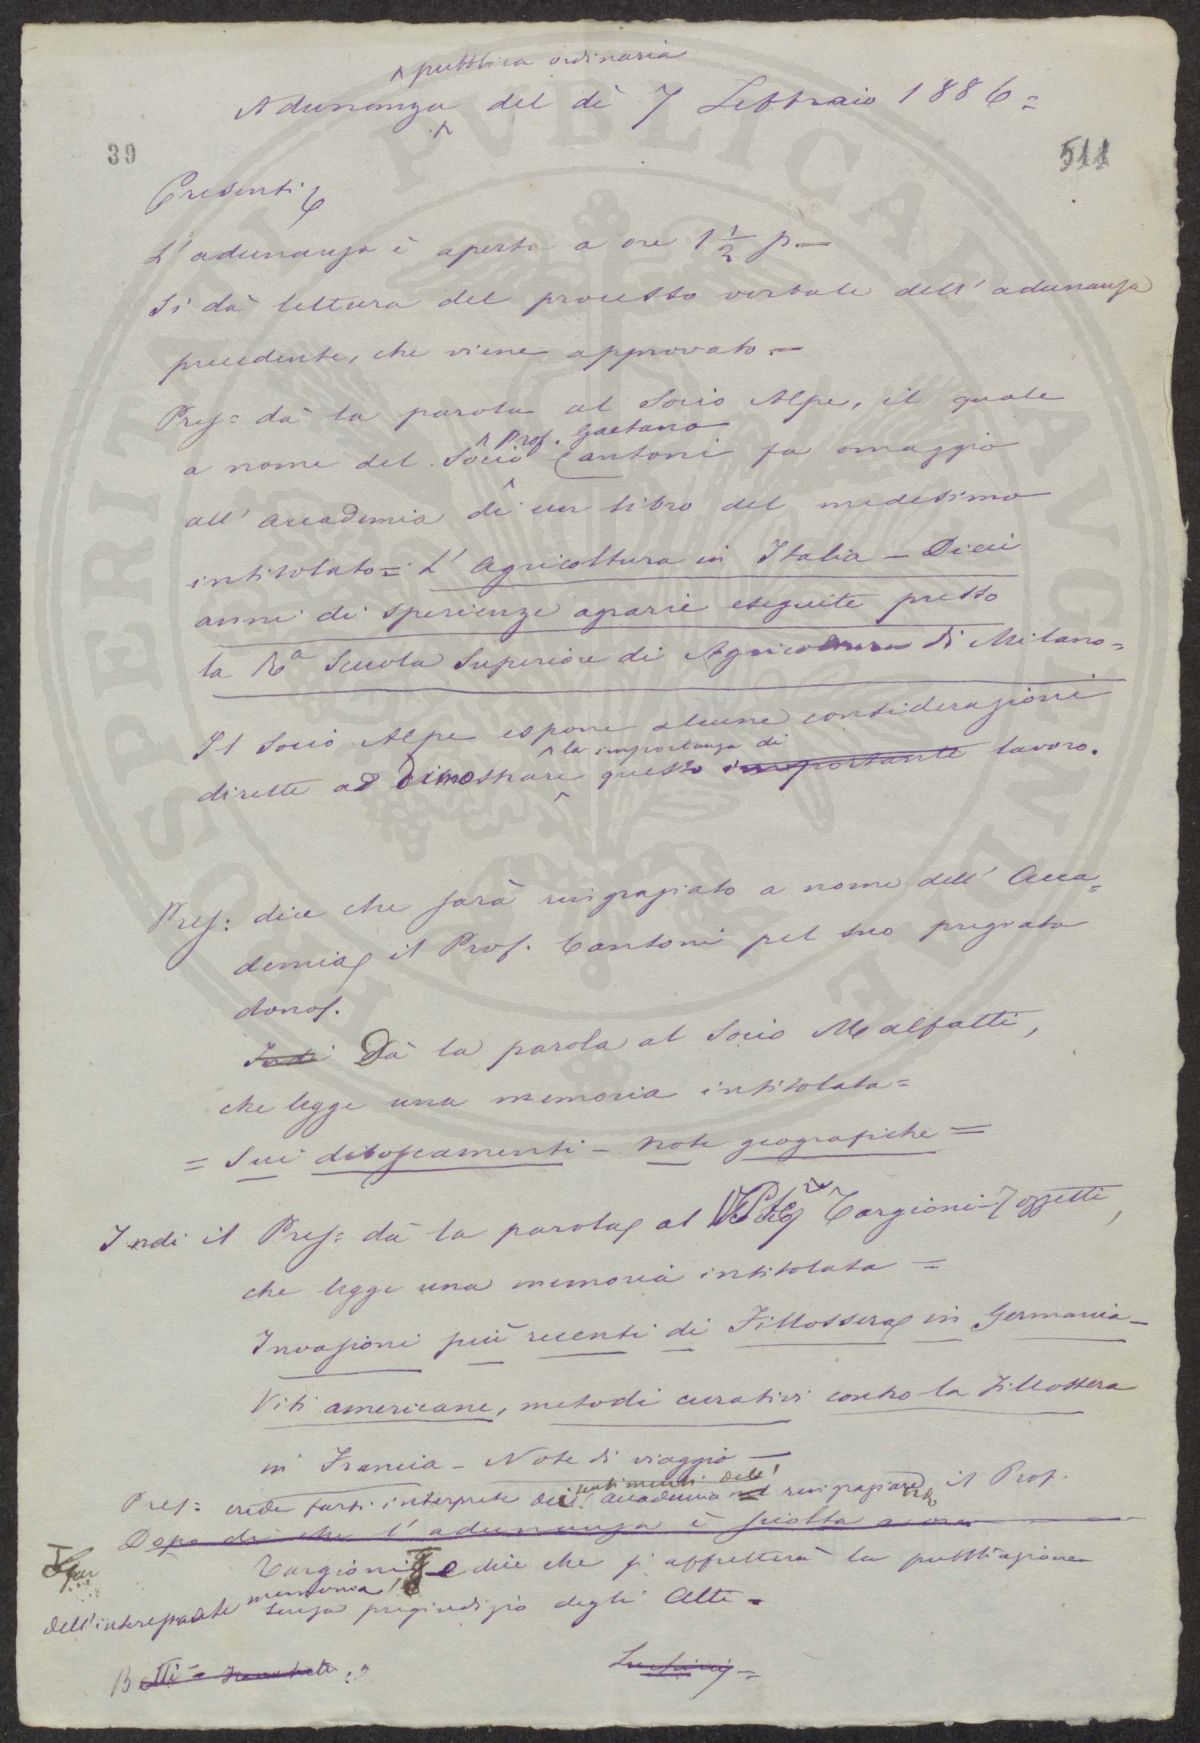 pubblica ordinaria
Adunanza del dì 7 Febbraio 1886=
39
511
Presenti
L'adunanza è aperta a ore 1 1/2 p.—
Si dà lettura del processo verbale dell'adunanza
precedente, che viene approvato.—
Pres= dà la parola al Socio Alpe, il quale
Prof. Gaetano
a nome del Socio Cantoni fa omaggio
all'Accademia di un libro del medesimo
intitolato=: L'Agricoltura in Italia — Dieci
anni di sperienze agrarie eseguite presso
la Ra Scuola Superiore di Agricoltura di Milano=
Il Socio Alpe espone alcune considerazioni
la importanza di
dirette ad dimostrare questo importante lavoro.
Pres: dice che sarà ringraziato a nome dell'Acca=
demia il Prof. Cantoni pel suo pregiato
dono.
Indi Dà la parola al Socio Malfatti,
che legge una memoria intitolata=
= Sui disboscamenti — Note geografiche =
Indi il Pres= dà la parola al Targioni-Tozzetti,
che legge una memoria intitolata =
Invasioni più recenti di Fillossera in Germania —
Viti americane, metodi curativi contro la Fillossera
in Francia — Note di viaggio —
sentimenti dell'
Pres= crede farsi interprete dei Accademia ringraziando il Prof.
Dopo di che l'adunanza è sciolta a ore
Targioni e dice che si affretterà la pubblicazione
dell'interessante memoria senza pregiudizio degli Atti —
PUBLICAE
PROSPERITATI
AUGENDAE